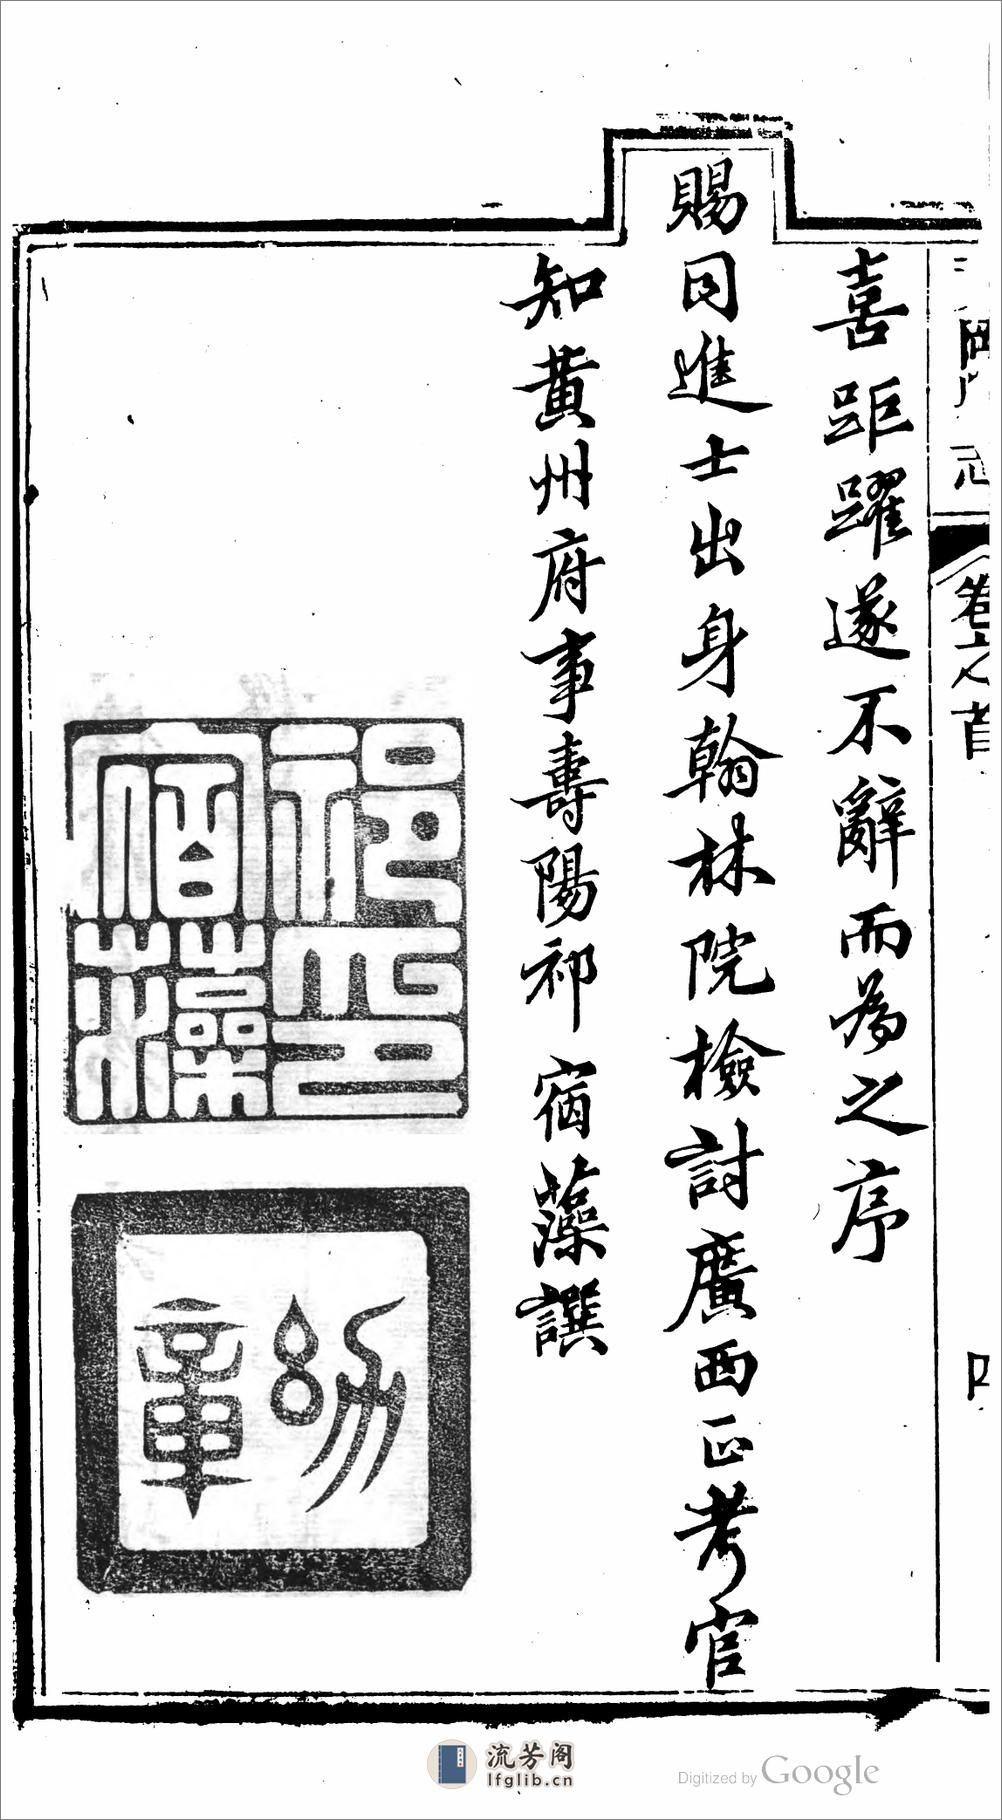 喜距躍遂不辭而為之序
賜同進士出身翰林院檢討廣西正考官
知黃州府事壽陽祁宿藻撰
祁印
宿藻
幼章
志
卷之首
四
流芳阁
lfglib.cn
Digitized by Google